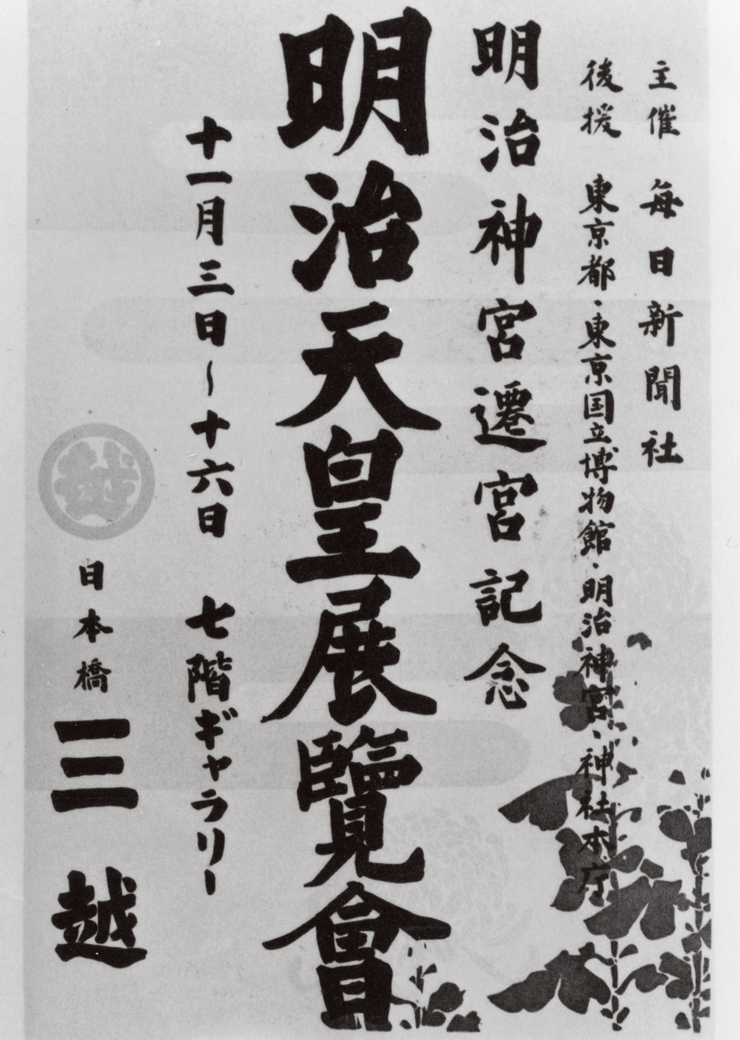 主催 毎日新聞社
後援 東京都・東京国立博物館・明治神宮・神社本庁
明治神宮遷宮記念
明治天皇展覧會
十一月三日〜十六日 七階ギャラリー
越
日本橋 三越